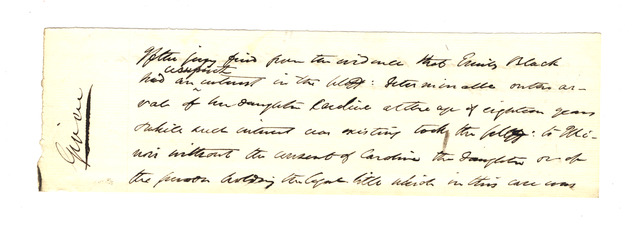 If the jury find from the evidence that Emily Black
had an interest in the pltff: determinable on the ar-
rival of her daughter Caroline at the age of eighteen years
& while such interest was existing took the pltff: to Illi-
nois without the consent of Caroline the daughter or of
the person holding the legal title which in this case was
Given